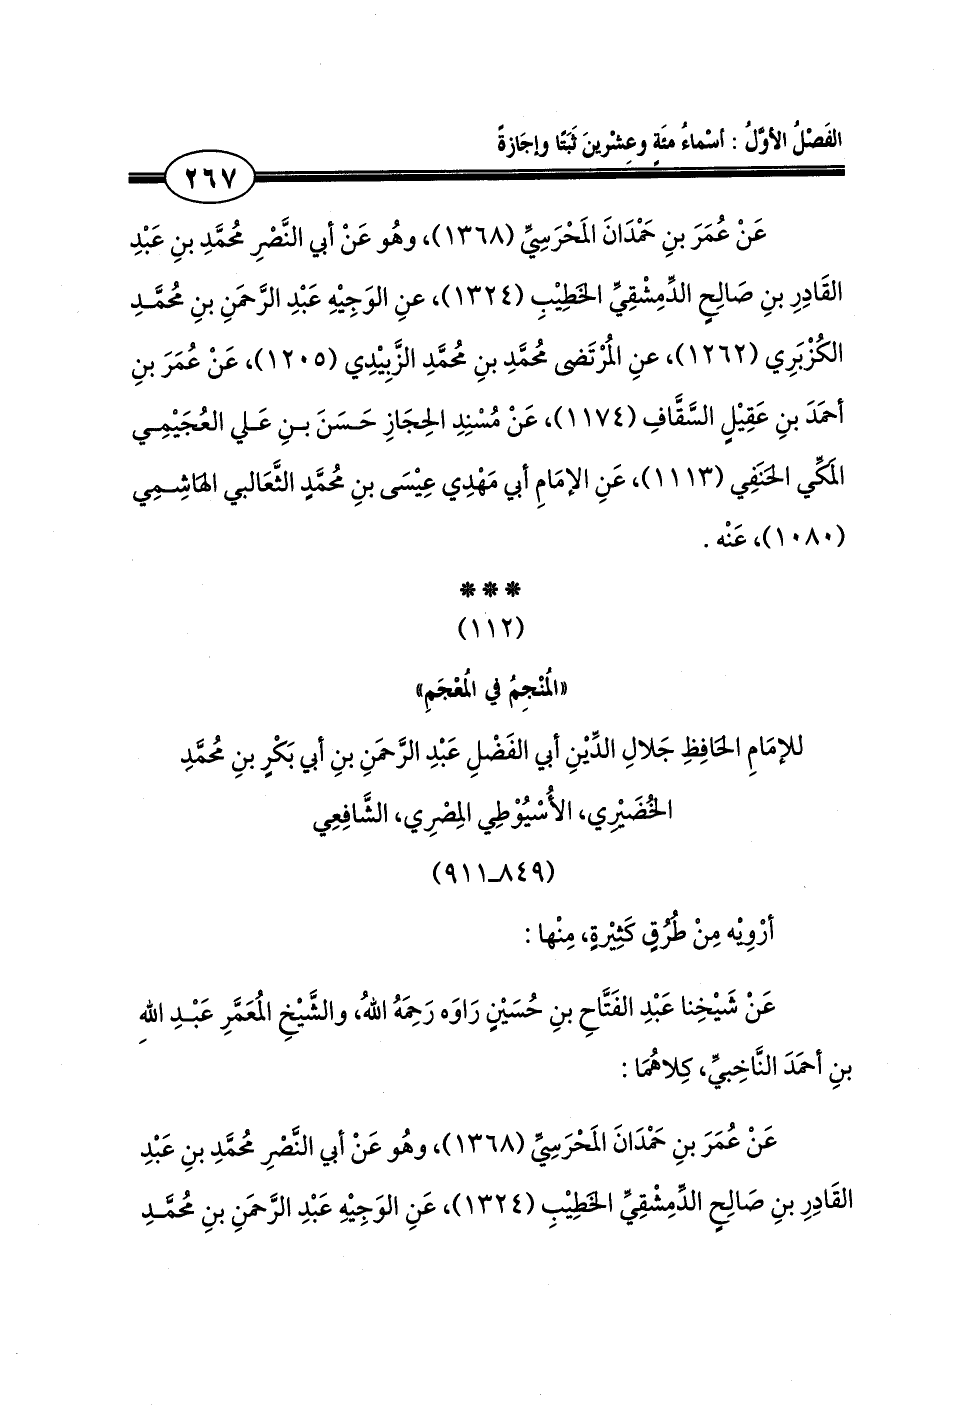 الفَصْلُ الأوَّلُ : أسْماءُ مئَةٍ وعِشْرينَ ثَبَتًا وإجَازةً
٢٦٧
عَنْ عُمَرَ بنِ حَمْدَانَ المَحْرَسِيِّ (١٣٦٨)، وهُو عَنْ أبي النَّصْرِ مُحمَّدِ بنِ عَبْدِ
القَادِرِ بنِ صَالِحٍ الدِّمشْقِيِّ الخَطِيْبِ (١٣٢٤)، عنِ الوَجِيْهِ عَبْدِ الرَّحمَنِ بنِ مُحمَّـدِ
الكُزْبَرِي (١٢٦٢)، عنِ المُرْتَضى مُحمَّدِ بنِ مُحمَّدِ الزَّبِيْدِي (١٢٠٥)، عَنْ عُمَرَ بنِ
أحمَدَ بنِ عَقِيْلٍ السَّقَّافِ (١١٧٤)، عَنْ مُسْنِدِ الحِجَازِ حَسَنَ بـنِ عَـلي العُجَيْمِـي
المَكِّي الحَنَفِي (١١١٣)، عَنِ الإمَامِ أبي مَهْدِي عِيْسَى بنِ مُحمَّدٍ الثَّعَالبي الهَاشِـمِي
(١٠٨٠)، عَنْه .
***
(١١٢)
«المُنْجِمُ في المُعْجَمِ»
للإمَامِ الحَافِظِ جَلالِ الدِّيْنِ أبي الفَضْلِ عَبْدِ الرَّحمَنِ بنِ أبي بَكْرٍ بنِ مُحمَّدِ
الخُضَيْرِي، الأُسْيُوْطِي المِصْرِي، الشَّافِعِي
(٨٤٩ـ٩١١)
أرْوِيْه مِنْ طُرُقٍ كَثِيْرةٍ، مِنْها :
عَنْ شَيْخِنا عَبْدِ الفَتَّاحِ بنِ حُسَيْنٍ رَاوَه رَحِمَهُ اللهُ، والشَّيْخِ المُعَمَّرِ عَبْـدِ اللهِ
بنِ أحمَدَ النَّاخِبيِّ، كِلاهُمَا :
عَنْ عُمَرَ بنِ حَمْدَانَ المَحْرَسِيِّ (١٣٦٨)، وهُو عَنْ أبي النَّصْرِ مُحمَّدِ بنِ عَبْدِ
القَادِرِ بنِ صَالِحٍ الدِّمشْقِيِّ الخَطِيْبِ (١٣٢٤)، عَنِ الوَجِيْهِ عَبْدِ الرَّحمَنِ بنِ مُحمَّـدِ